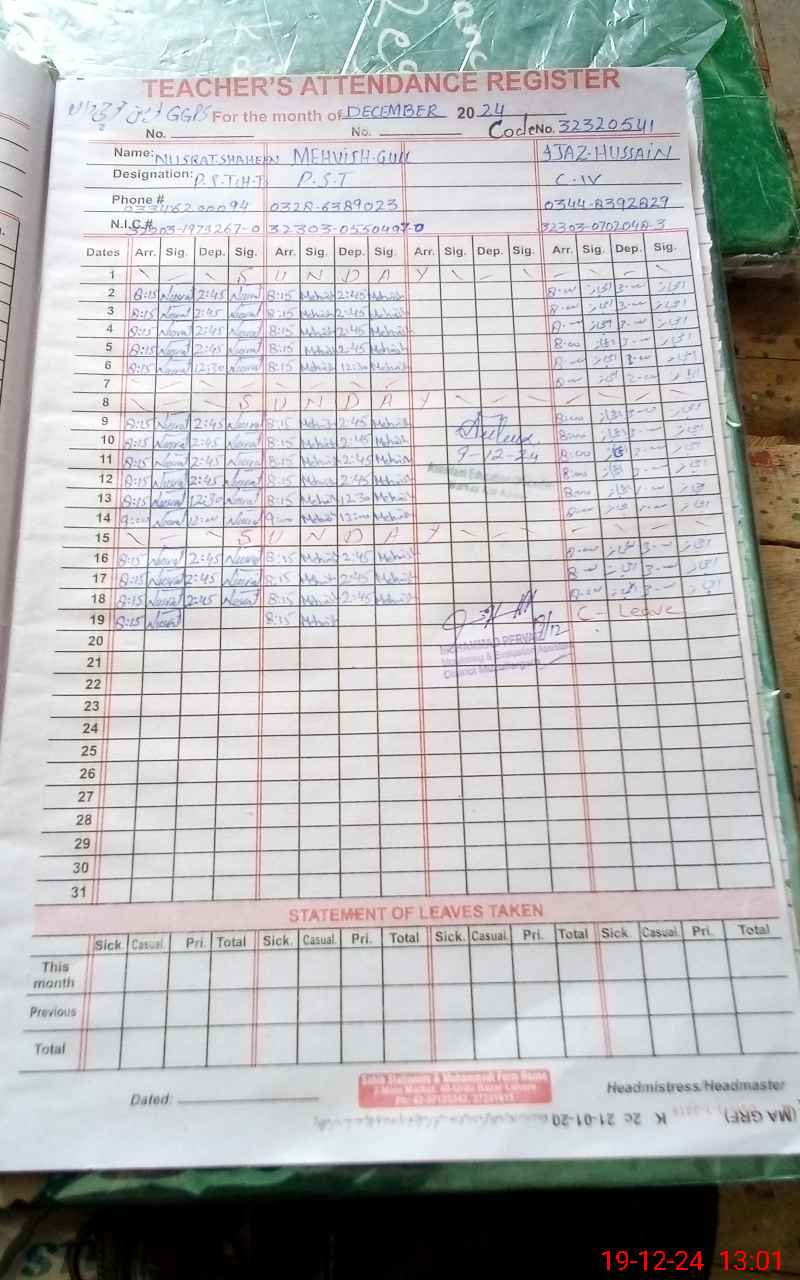 TEACHER'S ATTENDANCE REGISTER
GGPS For the month of DECEMBER 2024
No. No. Code No. 32320541
Name: NUSRAT SHAHEEN MEHVISH GULL AJAZ HUSSAIN
Designation: P.S.T(H.T) P.S.T C.IV
Phone # 0328-6389023 0344-8392829
N.I.C.# 32303-1973267-0 32303-0702048-3
Dates Arr. Sig. Dep. Sig. Arr. Sig. Dep. Sig. Arr. Sig. Dep. Sig. Arr. Sig. Dep. Sig.
1 S U N D A Y
2 8:15 Nusrat 2:45 Nusrat 8:15 Mehvish 2:45 Mehvish 8:00 اعجاز 3:00 اعجاز
3 8:15 Nusrat 2:45 Nusrat 8:15 Mehvish 2:45 Mehvish 8:00 اعجاز 3:00 اعجاز
4 8:15 Nusrat 2:45 Nusrat 8:15 Mehvish 2:45 Mehvish 8:00 اعجاز 3:00 اعجاز
5 8:15 Nusrat 2:45 Nusrat 8:15 Mehvish 2:45 Mehvish 8:00 اعجاز 3:00 اعجاز
6 8:15 Nusrat 12:30 Nusrat 8:15 Mehvish 12:30 Mehvish 8:00 اعجاز 3:00 اعجاز
7
8 S U N D A Y
9 8:15 Nusrat 2:45 Nusrat 8:15 Mehvish 2:45 Mehvish 8:00 اعجاز 3:00 اعجاز
10 8:15 Nusrat 2:45 Nusrat 8:15 Mehvish 2:45 Mehvish 8:00 اعجاز 3:00 اعجاز
11 8:15 Nusrat 2:45 Nusrat 8:15 Mehvish 2:45 Mehvish 9-12-24 8:00 3:00 اعجاز
12 8:15 Nusrat 2:45 Nusrat 8:15 Mehvish 2:45 Mehvish 8:00 اعجاز 3:00 اعجاز
13 8:15 Nusrat 12:30 Nusrat 8:15 Mehvish 12:30 Mehvish 8:00 اعجاز 3:00 اعجاز
14 9:00 Nusrat 12:00 Nusrat 9:00 Mehvish 12:00 Mehvish 8:00 اعجاز 3:00 اعجاز
15 S U N D A Y
16 8:15 Nusrat 2:45 Nusrat 8:15 Mehvish 2:45 Mehvish 8:00 اعجاز 3:00 اعجاز
17 8:15 Nusrat 2:45 Nusrat 8:15 Mehvish 2:45 Mehvish 8:00 اعجاز 3:00 اعجاز
18 8:15 Nusrat 2:45 Nusrat 8:15 Mehvish 2:45 Mehvish 8:00 اعجاز 3:00 اعجاز
19 8:15 Nusrat 8:15 Mehvish C - Leave
MUHAMMAD PERVAIZ
Monitoring & Evaluation Assistant
District Muzaffargarh
20
21
22
23
24
25
26
27
28
29
30
31
STATEMENT OF LEAVES TAKEN
Sick. Casual. Pri. Total Sick. Casual. Pri. Total Sick. Casual. Pri. Total Sick. Casual. Pri. Total
This month
Previous
Total
Dated: Headmistress/Headmaster
19-12-24 13:01